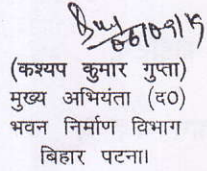 (कश्यप कुमार गुप्ता)
मुख्य अभियंता (द0)
भवन निर्माण विभाग
बिहार पटना।